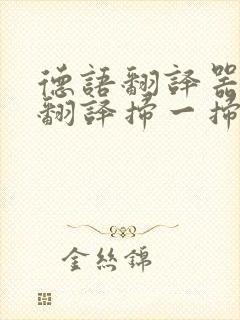 德語翻譯器
翻譯掃一掃
金絲錦